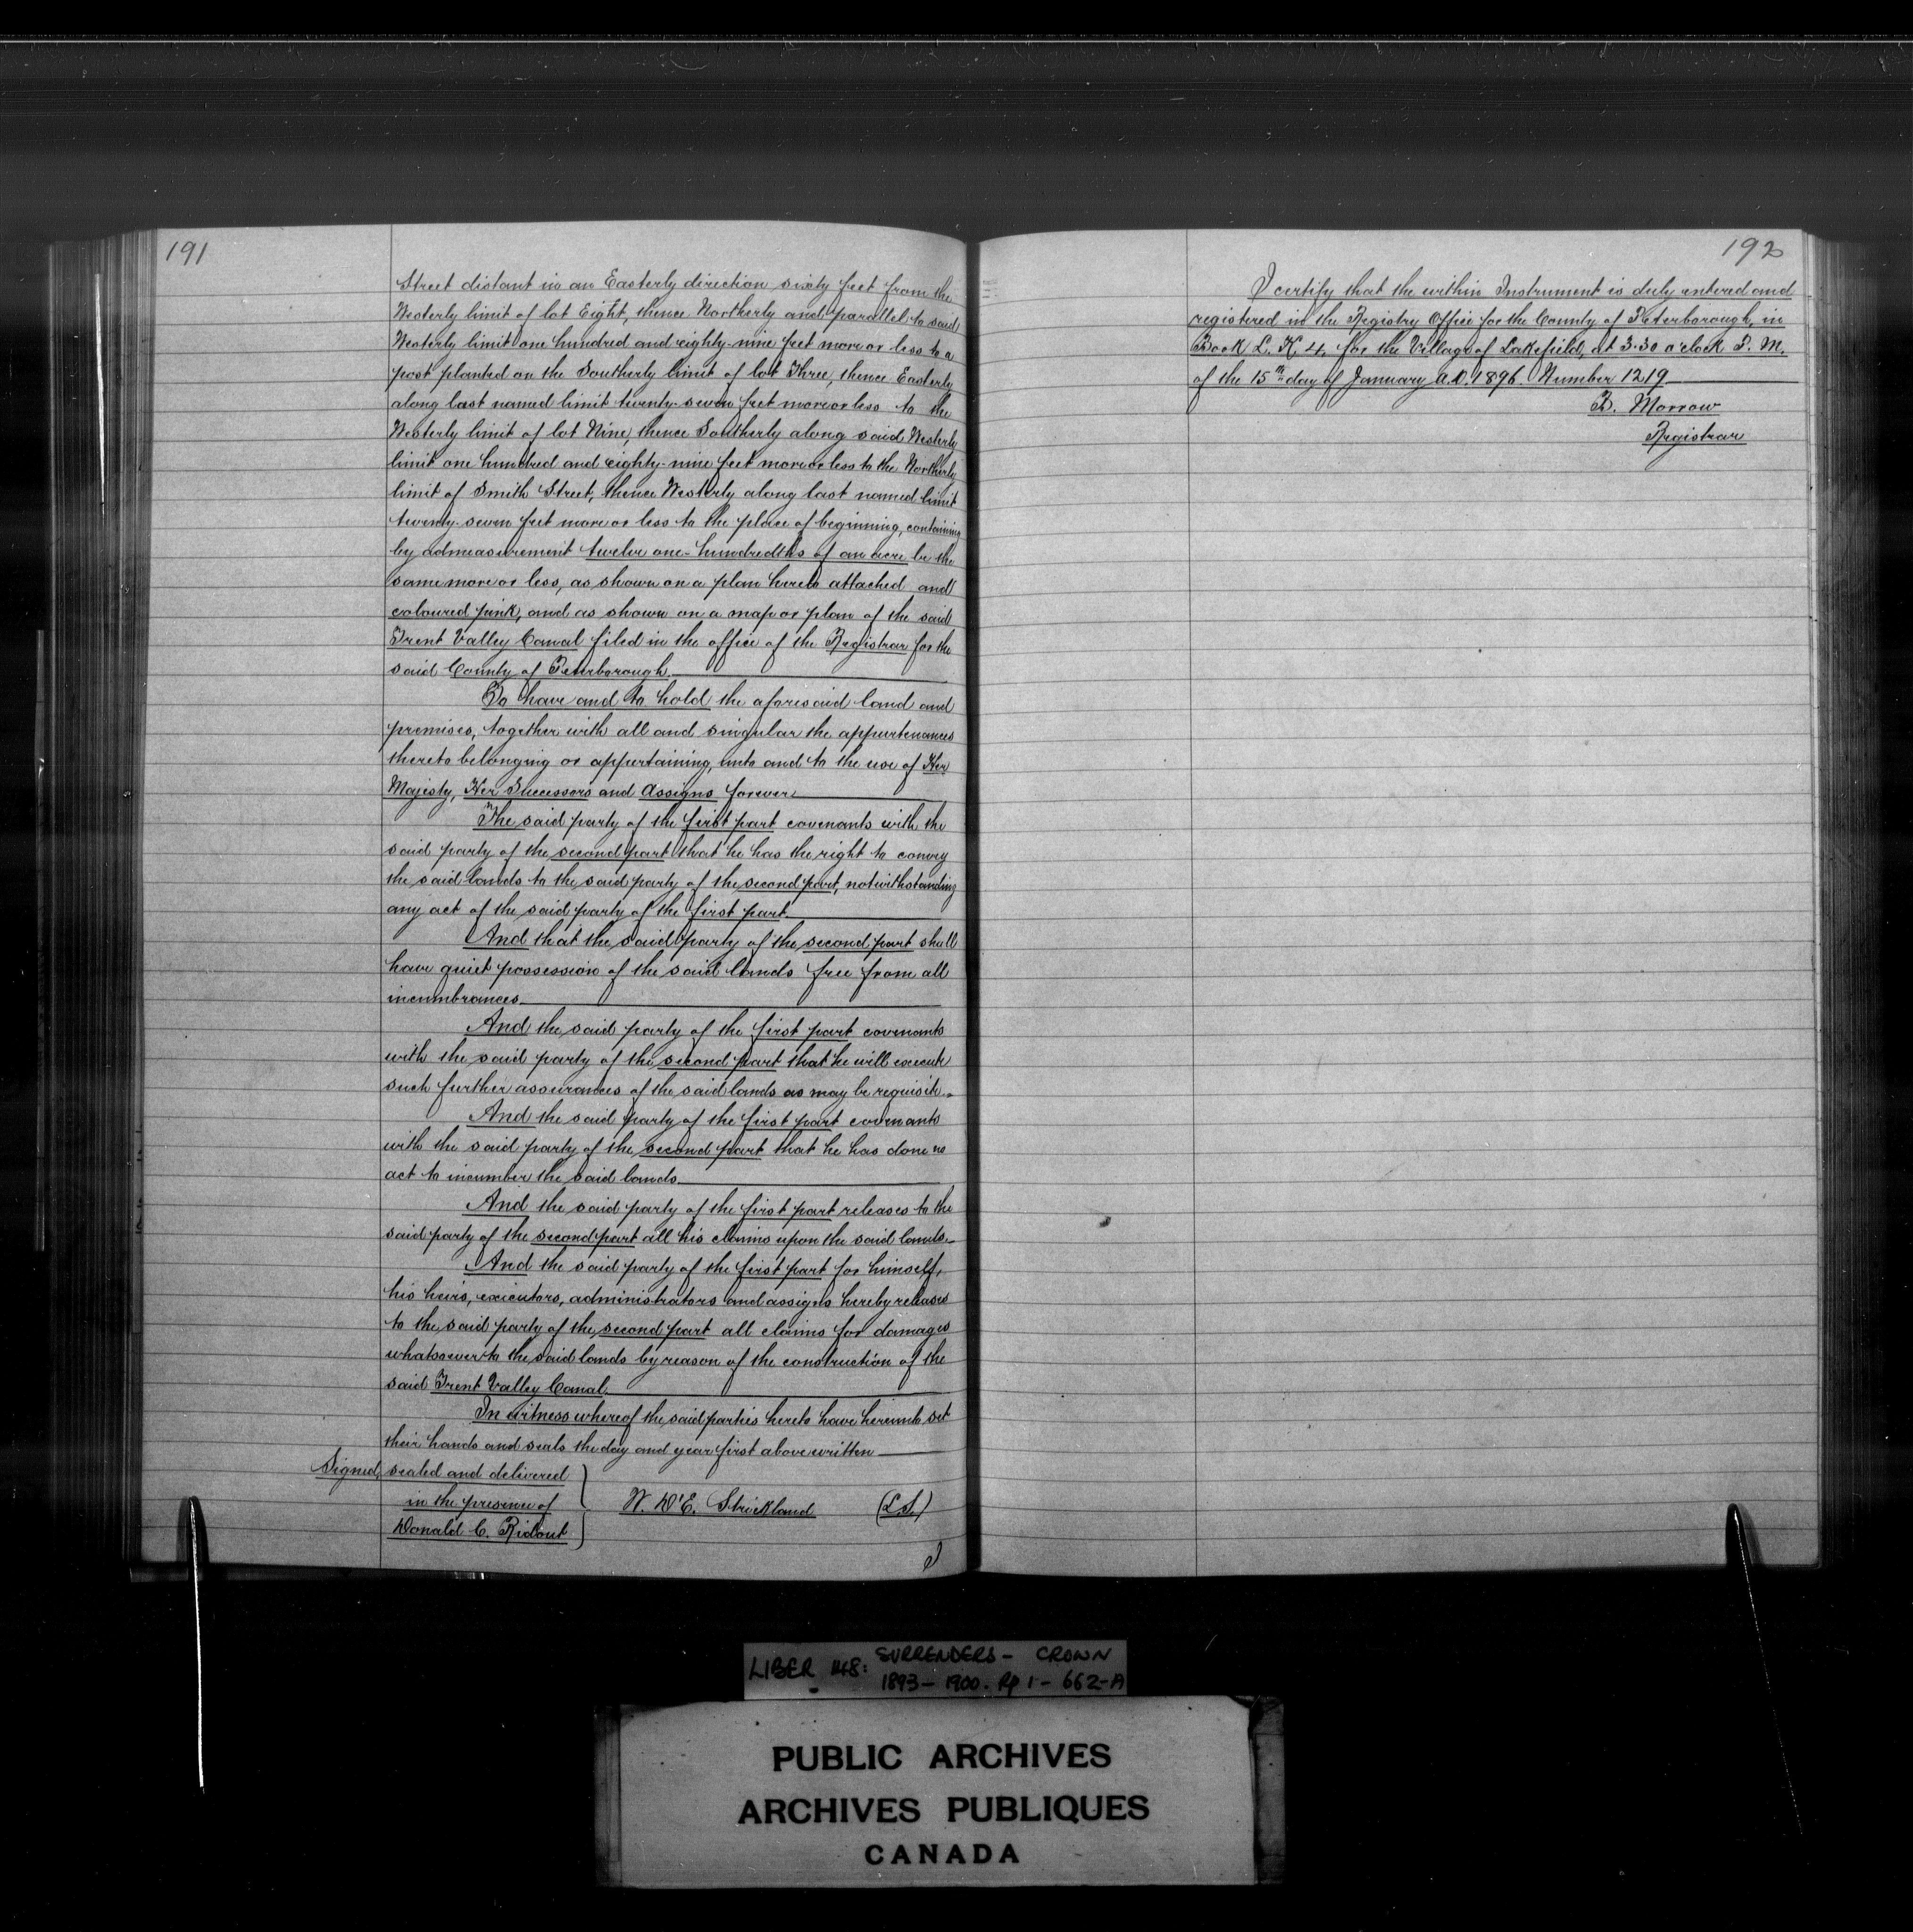 191
Street distant in an Easterly direction sixty feet from the
Westerly limit of lot Eight, thence Northerly and parallel to said
Westerly limit one hundred and eighty-nine feet more or less to a
post planted on the Southerly limit of lot Three, thence Easterly
along last named limit twenty-seven feet more or less to the
Westerly limit of lot Nine, thence Southerly along said Westerly
limit one hundred and eighty-nine feet more or less to the Northerly
limit of Smith Street, thence Westerly along last named limit
twenty-seven feet more or less to the place of beginning, containing
by admeasurement twelve one-hundredths of an acre be the
same more or less, as shown on a plan hereto attached and
coloured pink, and as shown on a map or plan of the said
Trent Valley Canal filed in the office of the Registrar for the
said County of Peterborough.
To have and to hold the aforesaid land and
premises, together with all and singular the appurtenances
thereto belonging or appertaining, unto and to the use of Her
Majesty, Her Successors and Assigns forever.
The said party of the first part covenants with the
said party of the second part that he has the right to convey
the said lands to the said party of the second part, notwithstanding
any act of the said party of the first part.
And that the said party of the second part shall
have quiet possession of the said lands free from all
incumbrances.
And the said party of the first part covenants
with the said party of the second part that he will execute
such further assurances of the said lands as may be requisite.
And the said party of the first part covenants
with the said party of the second part that he has done no
act to incumber the said lands.
And the said party of the first part releases to the
said party of the second part all his claims upon the said lands.
And the said party of the first part for himself,
his heirs, executors, administrators and assigns hereby releases
to the said party of the second part all claims for damages
whatsoever to the said lands by reason of the construction of the
said Trent Valley Canal.
In witness whereof the said parties hereto have hereunto set
their hands and seals the day and year first above written
Signed, sealed and delivered
in the presence of
Donald C. Ridout
W. D'E. Strickland (L.S.)
I
192
I certify that the within Instrument is duly entered and
registered in the Registry Office for the County of Peterborough, in
Book L. K. 4. for the Village of Lakefield, at 3.30 o'clock P. M.
of the 15th day of January A.D. 1896. Number 1219
B. Morrow
Registrar
LIBER 148: SURRENDERS - CROWN
1893 - 1900. Pp 1 - 662-A
PUBLIC ARCHIVES
ARCHIVES PUBLIQUES
CANADA